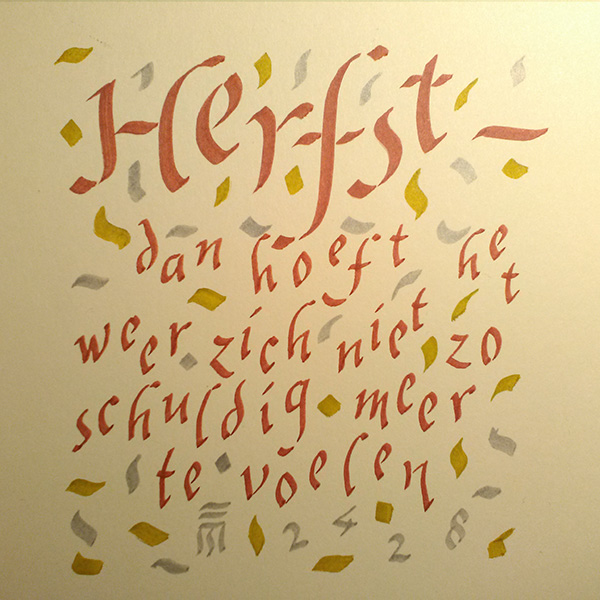 Herfst –
dan hoeft het
weer zich niet zo
schuldig meer
te voelen
2428